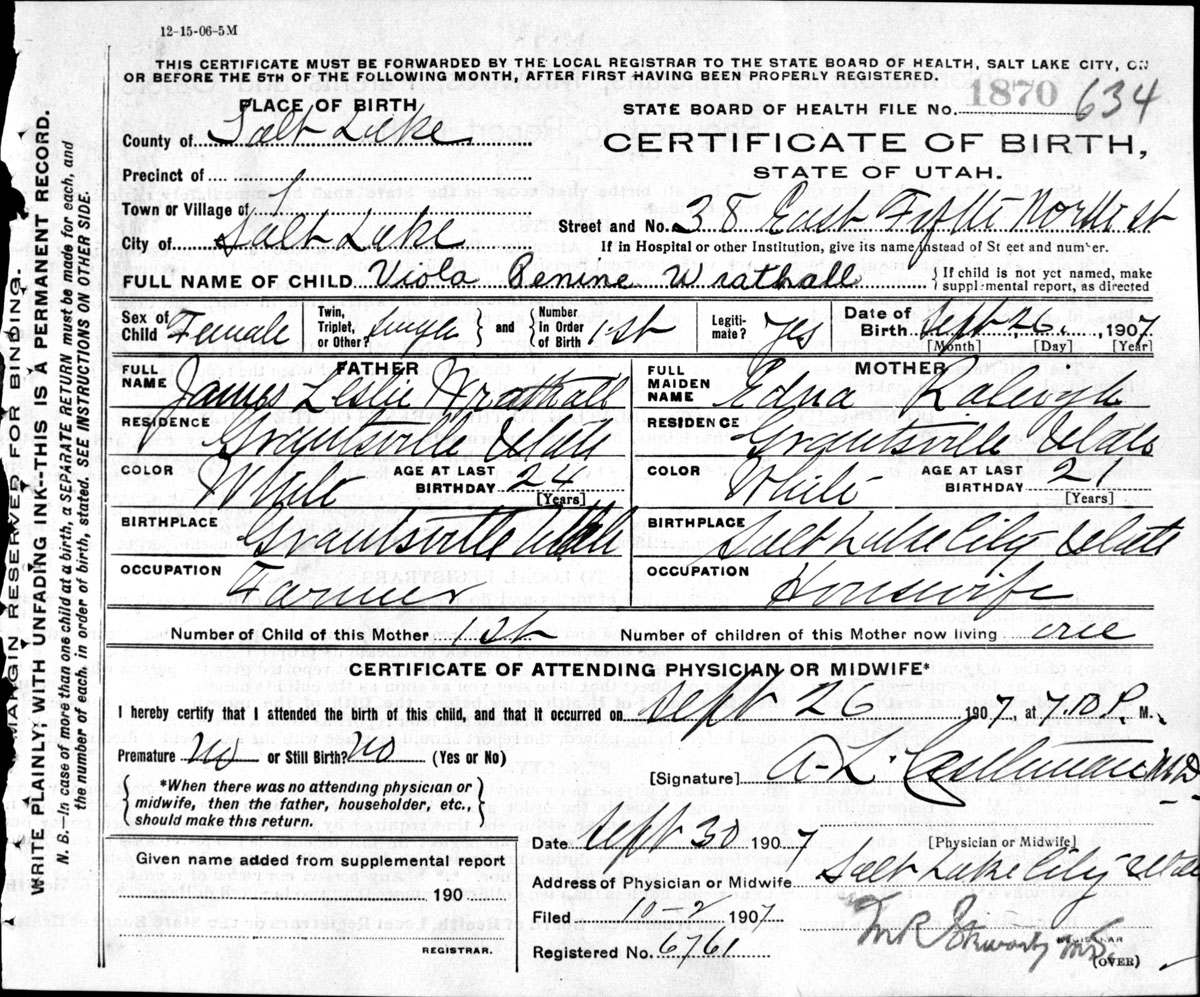 12-15-06-5M
THIS CERTIFICATE MUST BE FORWARDED BY THE LOCAL REGISTRAR TO THE STATE BOARD OF HEALTH, SALT LAKE CITY, ON
OR BEFORE THE 5TH OF THE FOLLOWING MONTH, AFTER FIRST HAVING BEEN PROPERLY REGISTERED.
PLACE OF BIRTH
STATE BOARD OF HEALTH FILE No. 1870 634
County of Salt Lake
CERTIFICATE OF BIRTH,
STATE OF UTAH.
Precinct of
Town or Village of
Street and No. 38 East Fifth North st
City of Salt Lake
If in Hospital or other Institution, give its name instead of St eet and num er.
FULL NAME OF CHILD Viola Penine Wrathall
{ If child is not yet named, make
supplemental report, as directed
Sex of Child Female
Twin, Triplet, or Other? single } and { Number in Order of Birth 1st
Legitimate? yes
Date of Birth Sept 26, 1907
[Month] [Day] [Year]
FATHER
FULL NAME James Leslie Wrathall
RESIDENCE Grantsville Utah
COLOR White AGE AT LAST BIRTHDAY 24 [Years]
BIRTHPLACE Grantsville Utah
OCCUPATION Farmer
MOTHER
FULL MAIDEN NAME Edna
RESIDENCE Grantsville Utah
COLOR White AGE AT LAST BIRTHDAY 21 [Years]
BIRTHPLACE Salt Lake City Utah
OCCUPATION Housewife
Number of Child of this Mother 1st Number of children of this Mother now living one
CERTIFICATE OF ATTENDING PHYSICIAN OR MIDWIFE*
I hereby certify that I attended the birth of this child, and that it occurred on Sept 26 1907, at 7.10 P. M.
Premature No or Still Birth? No (Yes or No)
*When there was no attending physician or
midwife, then the father, householder, etc.,
should make this return.
[Signature] A. L. MD
[Physician or Midwife]
Date Sept 30 1907
Given name added from supplemental report
190
REGISTRAR.
Address of Physician or Midwife Salt Lake City Utah
Filed 10-2 1907
Registered No. 6761
REGISTRAR
(OVER)
MARGIN RESERVED FOR BINDING.
WRITE PLAINLY, WITH UNFADING INK--THIS IS A PERMANENT RECORD.
N. B.—In case of more than one child at a birth, a SEPARATE RETURN must be made for each, and
the number of each, in order of birth, stated. SEE INSTRUCTIONS ON OTHER SIDE.